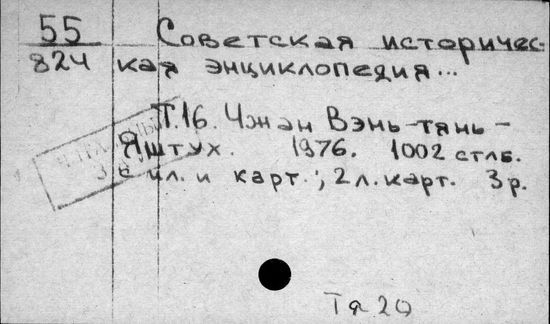 55 Советская историчес-
824 кая энциклопедия...
Т.16. Чжан Вэнь-тянь-
Яштух. 1976. 1002 стлб.
с ил. и карт.; 2 л. карт. 3 р.
Тя 20